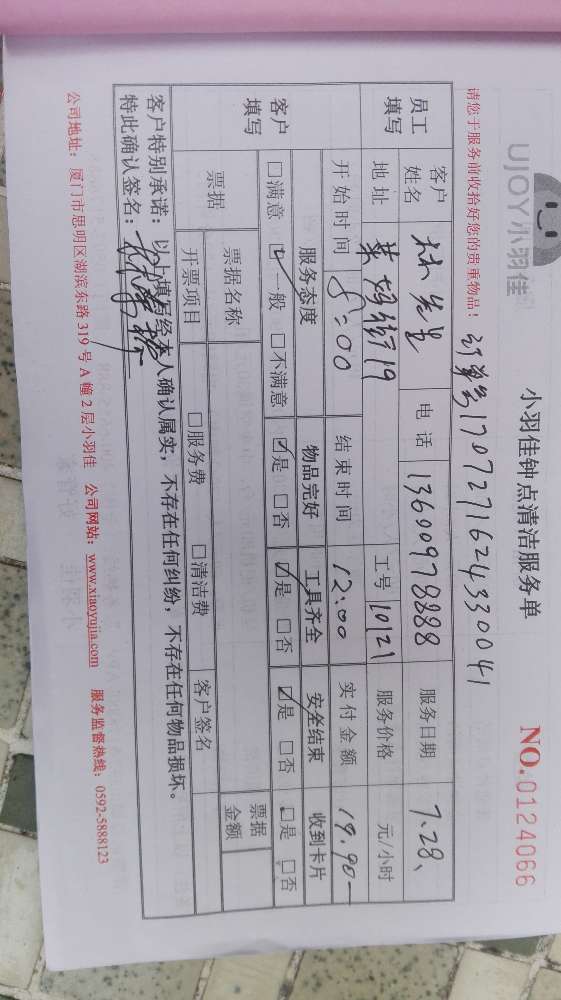 UJOY小羽佳
小羽佳钟点清洁服务单
NO.0124066
请您于服务前收拾好您的贵重物品！
订单号17072716244330041
员工填写
客户姓名 林先生 电话 13600978888 服务日期 7.28、
地址 19 工号 10121 服务价格 元/小时
开始时间 8:00 结束时间 12:00 实付金额 19.90—
客户填写
服务态度 物品完好 工具齐全 安全结束 收到卡片
□满意 ☑一般 □不满意 ☑是 □否 ☑是 □否 ☑是 □否 □是 □否
票据 票据名称 票据金额
开票项目 □服务费 □清洁费 客户签名
客户特别承诺：以上填写经本人确认属实，不存在任何纠纷，不存在任何物品损坏。
特此确认签名：
公司地址：厦门市思明区湖滨东路319号A幢2层小羽佳 公司网站：www.xiaoyujia.com 服务监督热线：0592-5888123